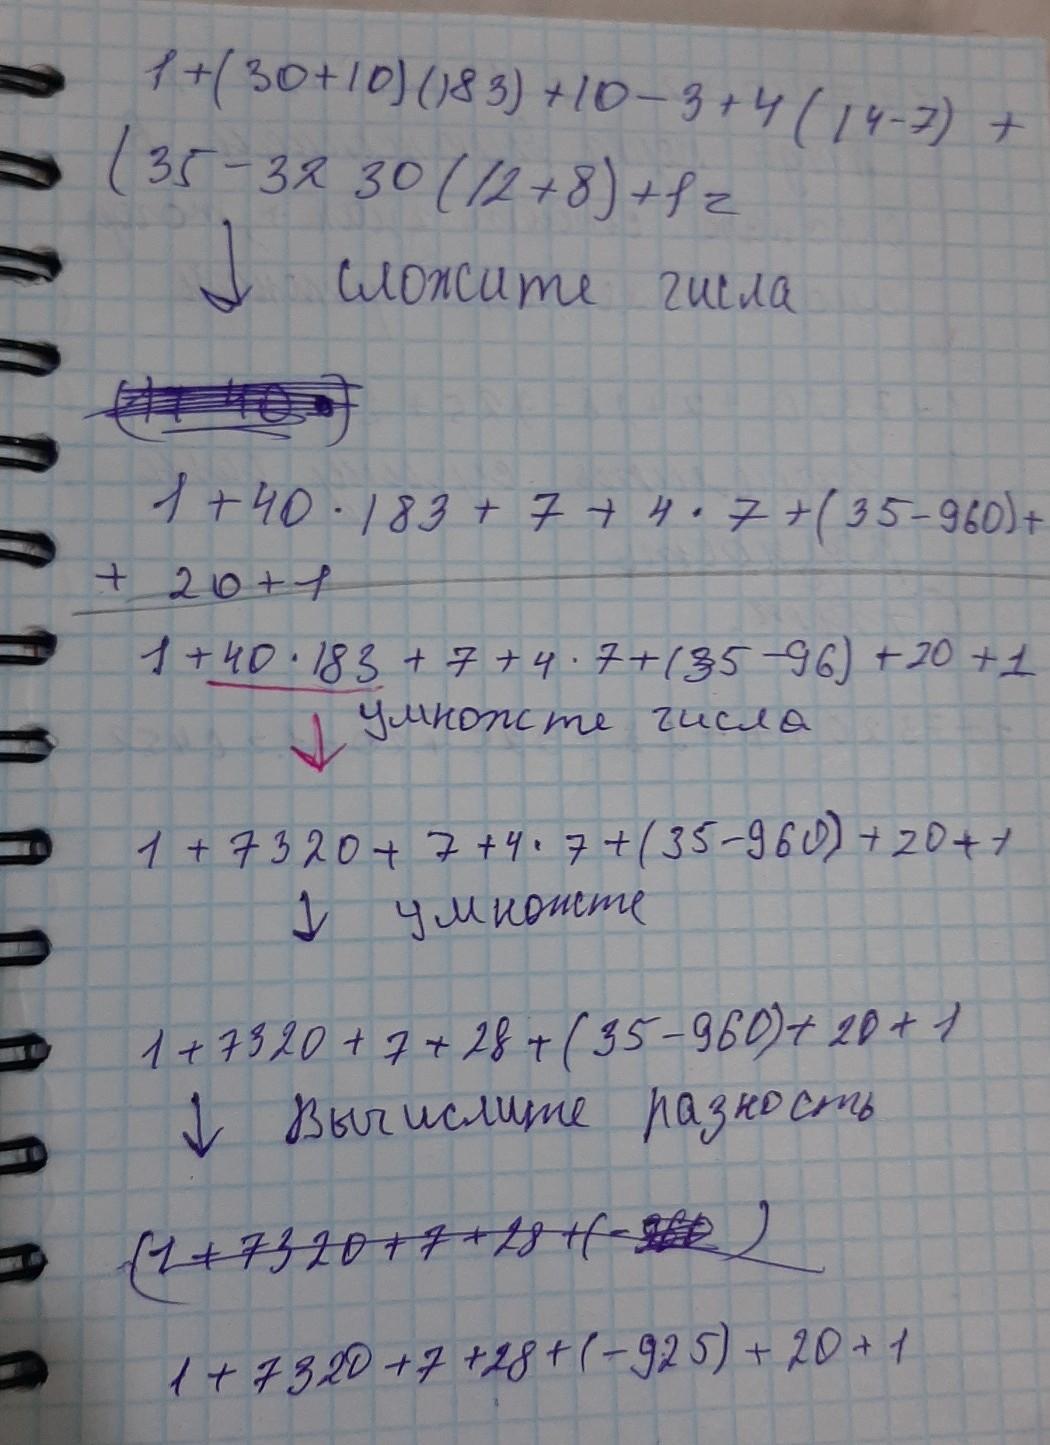 1+(30+10)(183)+10-3+4(14-7)+
(35-32 30(12+8)+1=
↓ сложите числа
1+40·183+7+4·7+(35-960)+
+ 20+1
1+40·183+7+4·7+(35-96)+20+1
↓ умножте числа
1+7320+7+4·7+(35-960)+20+1
↓ умножте
1+7320+7+28+(35-960)+20+1
↓ Вычислите разность
(1+7320+7+28+(-960)
1+7320+7+28+(-925)+20+1